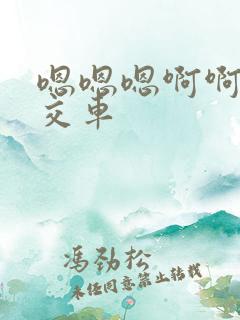 嗯嗯嗯啊啊
交车
冯劲松
未经同意禁止转载